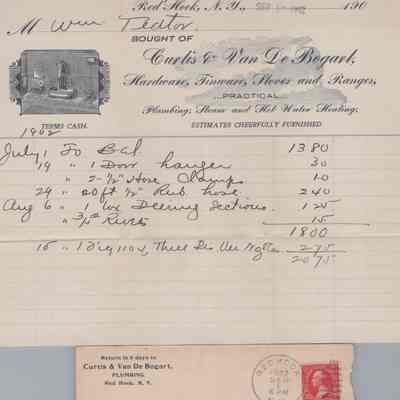 Red Hook, N. Y., SEP 1902 190
M Wm Teator.
BOUGHT OF
Curtis & Van De Bogart,
Hardware, Tinware, Stoves and Ranges,
PRACTICAL
Plumbing, Steam and Hot Water Heating.
TERMS CASH.
ESTIMATES CHEERFULLY FURNISHED
1902
July 1 To Bal 13 80
19 " 1 Door hanger 30
" 2 - 1/2" Hose Clamps 10
24 " 20 ft 1/2" Rub hose 2 40
Aug 6 " 1 box Deering Sections 1 25
" 3/4 # Rivets 15
18 00
15 " 1 2 75
20 75
Return in 5 days to
Curtis & Van De Bogart,
PLUMBING,
Red Hook, N. Y.
RED HOOK
1902